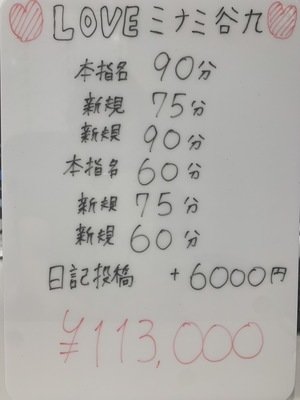 LOVEミナミ谷九
本指名 90分
新規 75分
新規 90分
本指名 60分
新規 75分
新規 60分
日記投稿 +6000円
¥113,000